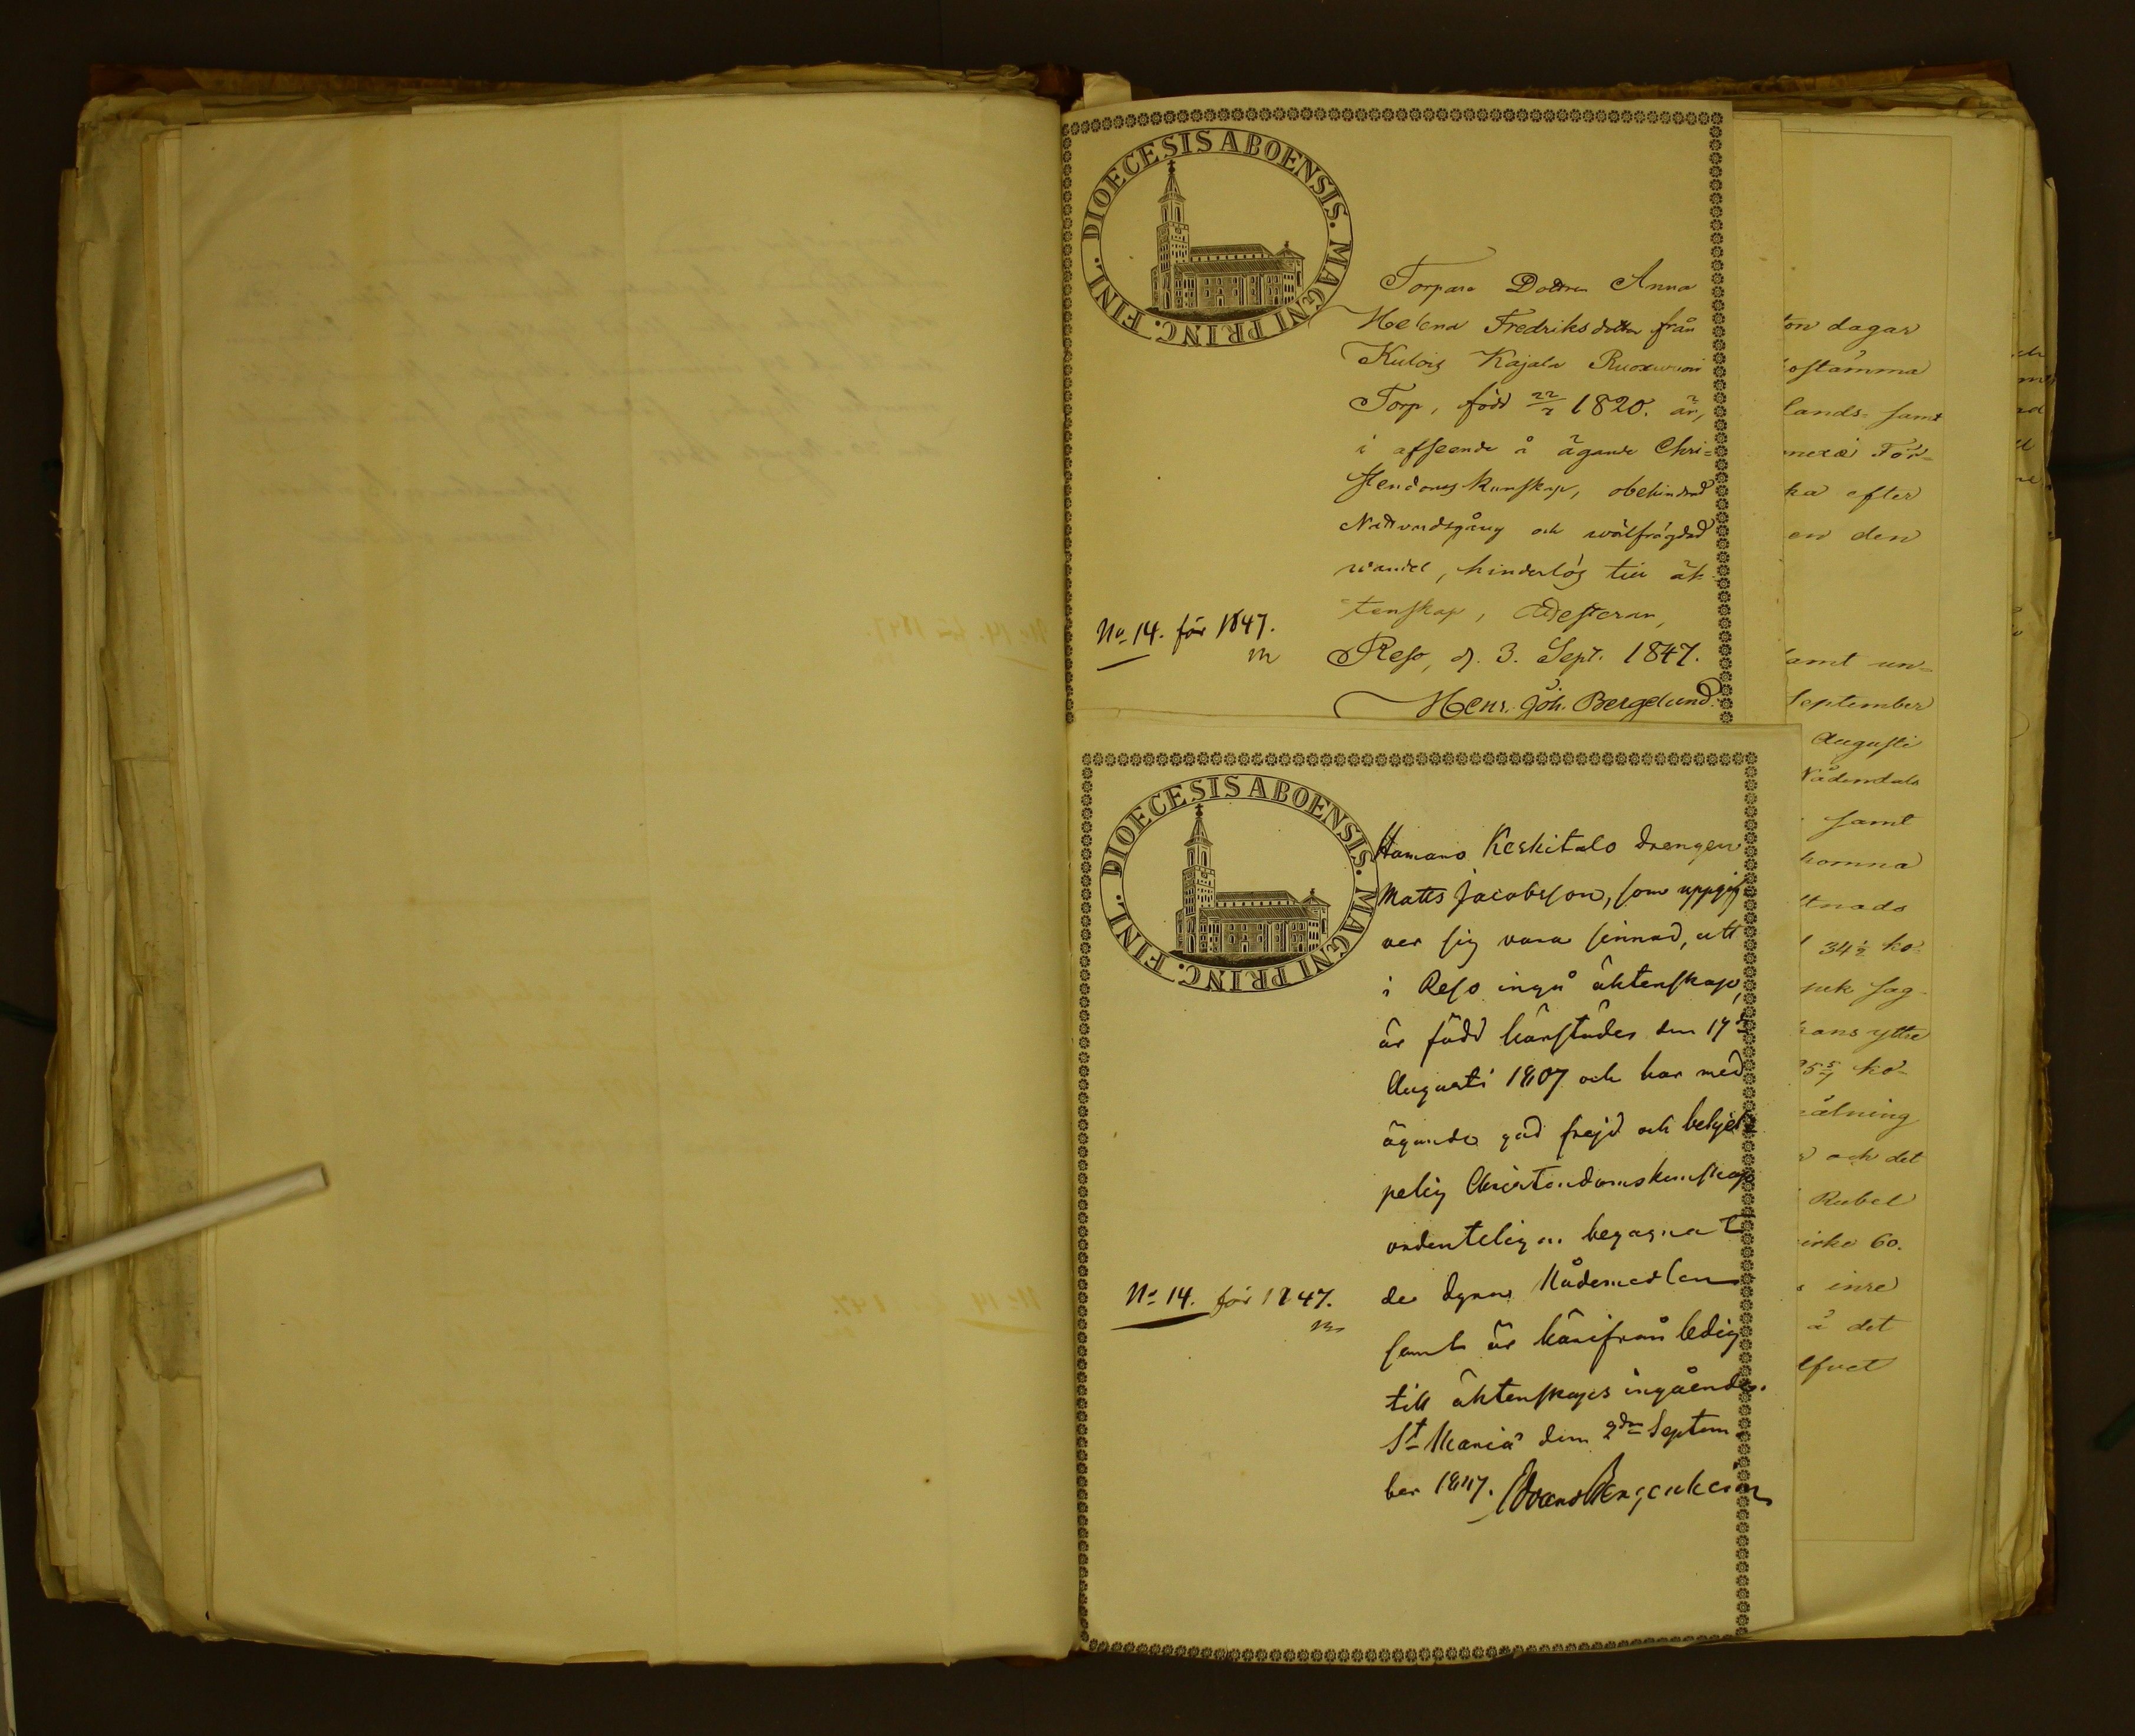 DIOECESIS ABOENSIS. MAGNI PRINC. FINL.
Torpare Dottren Anna
Helena Fredriksdotter från
Kulois Kajala Ruoxuvuori
Torp, född 22/2 1820. är,
i afseende å ägande Chri-
stendomskunskap, obehindrad
Nattvardsgång och wälfrägdad
wandel, hinderlös till äk-
tenskap, Attesteran,
Reso, d. 3. Sept. 1847.
Henr. Joh. Bergelund.
No 14. för 1847.
DIOECESIS ABOENSIS. MAGNI PRINC. FINL.
Hamaro Keskitalo drengen
Matts Jacobsson, som uppgif
ver sig vara sinnad, att
i Reso ingå äktenskap,
är född härstädes den 17de
Augusti 1807 och har med
ägande god frejd och behjelp
pelig Christendomskunskap
ordenteligen begagnat
de dyra Nådemedlen
samt är härifrån ledig
till äktenskaps ingående.
St Mariä den 2dn Septem
ber 1847.
No 14. för 1847.
ton dagar
ostämma
lands- samt
För-
ka efter
en den
samt un-
September
Augusti
Nådendals
samt
komna
tnads
34 1/2 ko-
sag-
hans yttre
ko-
ålning
och det
Rubel
60.
inre
å det